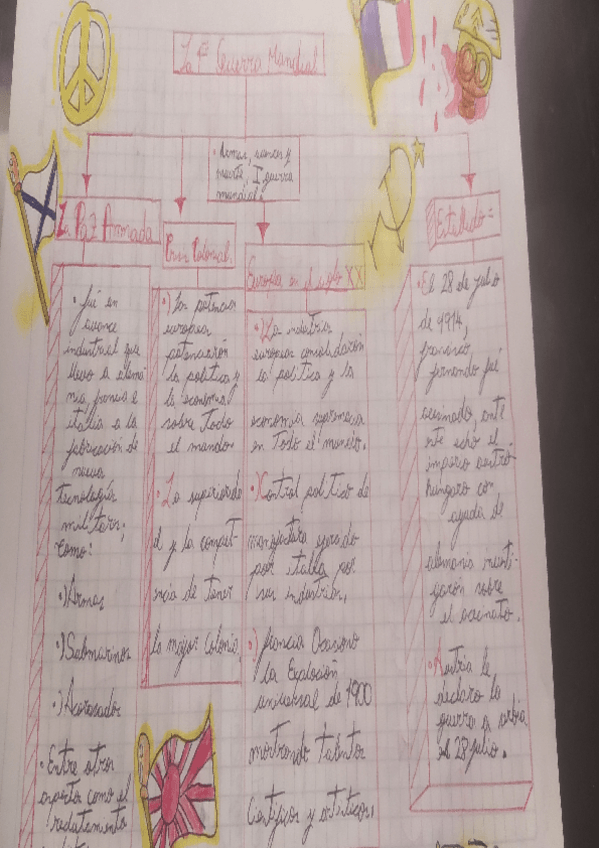 La 1ª Guerra Mundial
• Armas, avances y
muerte, I guerra
mundial.
La Paz Armada
• fué en
avance
industrial que
llevo a alema
nia, francia e
italia a la
fabricación de
nueva
Tecnología
militar;
como:
•) Armas
•) Submarinos
•) Acorazados
• Entre otros
como el
Crisis Colonial.
•) Las potencias
europeas
potenciarón
la política y
la economía
sobre Todo
el mundo.
• La superiorida
d y la compet-
encia de tener
la mejor Colonia.
Europa en el siglo XX
•) La industria
europea consolidarón
la política y la
economía supremacia
en Todo el mundo.
•) Control político de
manufactura ejercido
por italia por
ser industria.
•) francia Ocasiono
la Explosión
universal de 1900
mostrando talentos
Cientificos y artisticos.
Estallido:
• El 28 de julio
de 1914,
francisco,
fernando fué
asesinado, ante
este echo el
imperio austró
húngaro con
ayuda de
alemania investi-
garón sobre
el asecinato.
• Austria le
declaro la
guerra a serbia
el 28 julio.